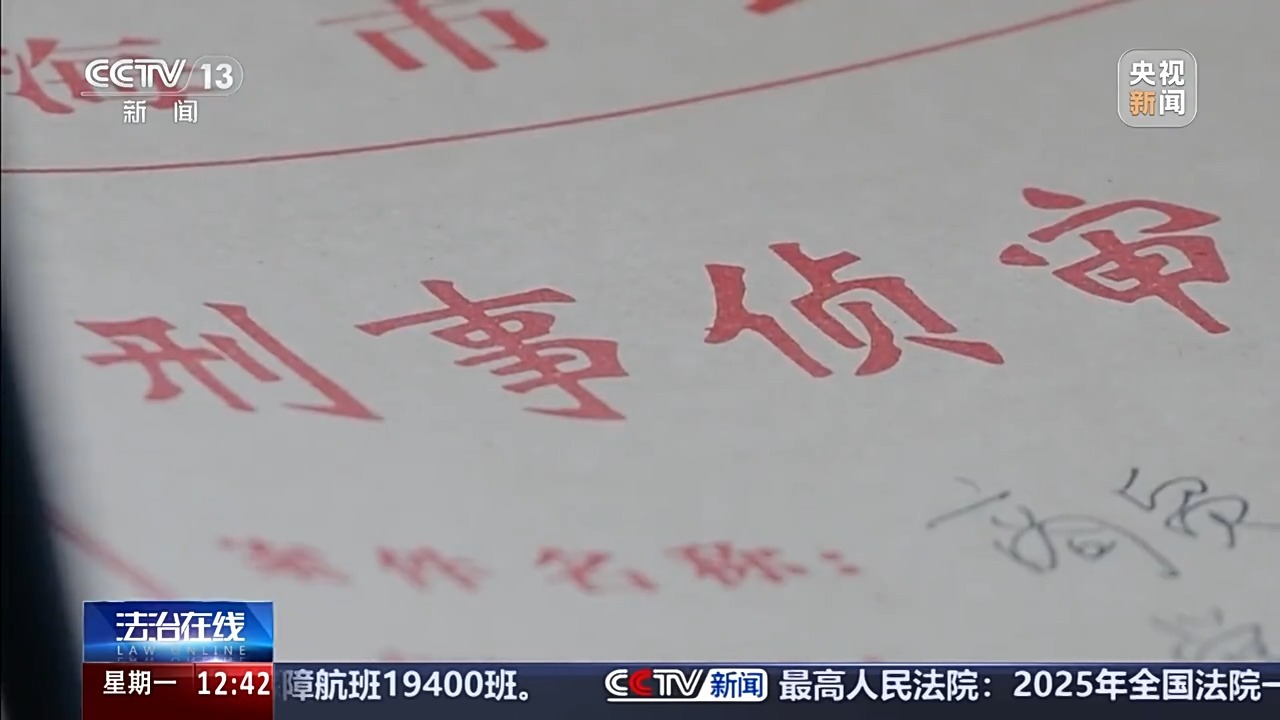 海市
CCTV 13
新闻
央视
新闻
刑事侦审
案件名称:
法治在线
LAW ONLINE
星期一 12:42
障航班19400班。 CCTV新闻 最高人民法院：2025年全国法院一